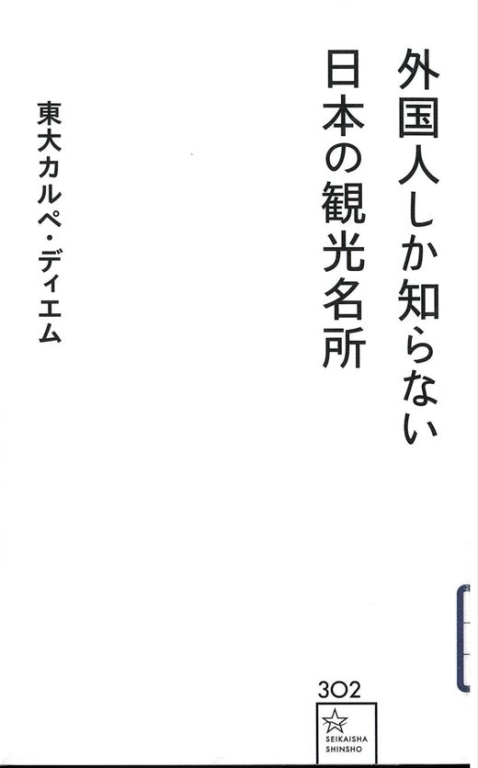 外国人しか知らない
日本の観光名所
東大カルペ・ディエム
302
SEIKAISHA
SHINSHO